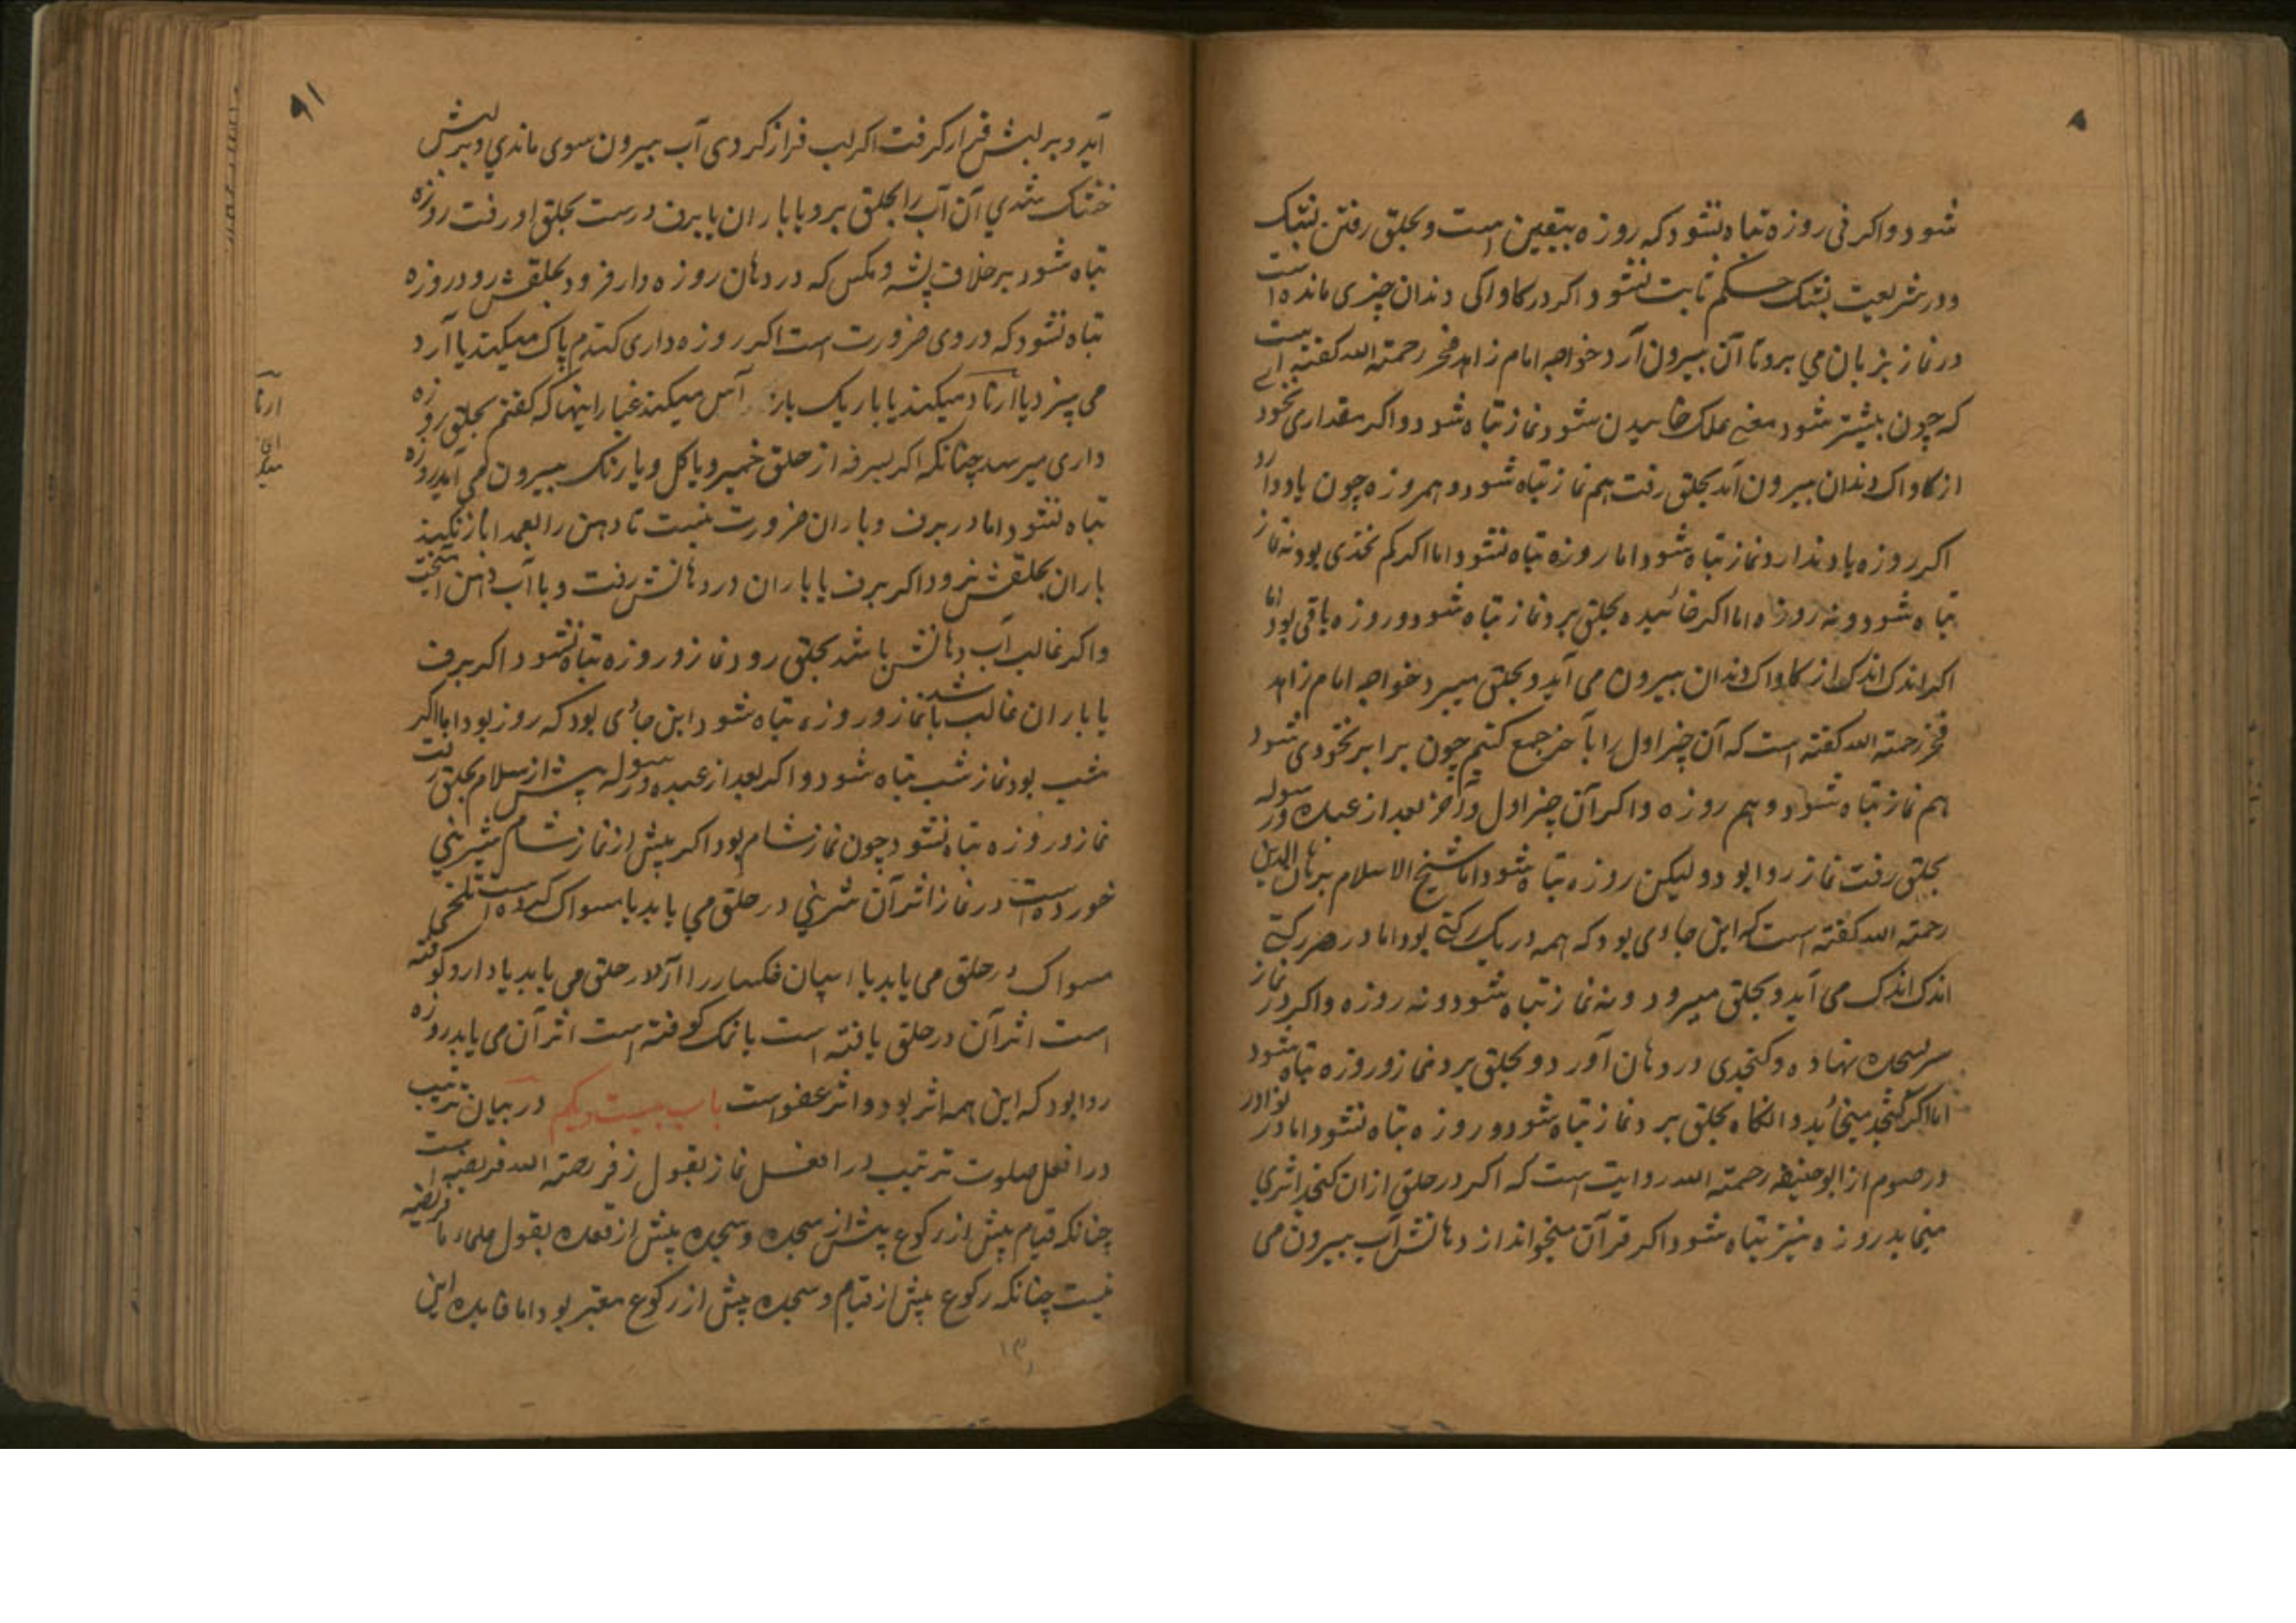 شود واکر فی روزه تباه نشود که روزه بیقین است و بحلق رفتن بشک
و در شریعت بشک حکم ثابت نشود اکر در کاواکی دندان چیزی مانده است
در نماز بزبان می برد تا آن بیرون آرد خواجه امام زاهد فخر رحمته الله کفته است
که چون بیشتر شود معنی علک خاییدن شود نماز تباه شود و اکر مقداری نخود
از کاواک دندان بیرون آید بحلق رفت هم نماز تباه شود و هم روزه چون یاد دارد
اکر روزه یاد ندارد نماز تباه شود اما روزه تباه نشود اما اکر کم نخدی بود نه نماز
تباه شود و نه روزه اما اکر خائیده بحلق برد نماز تباه شود و روزه باقی بود اما
اکر اندک اندک از کاواک دندان بیرون می آید و بحلق میبرد خواجه امام زاهد
فخر رحمته الله کفته است که آن چیز اول را با آخر جمع کنم چون برابر نخودی شود
هم نماز تباه شود و هم روزه واکر آن چیز اول و آخر بعد از عبده و رسوله
بحلق رفت نماز روا بود و لیکن روزه تباه شود اما شیخ الاسلام برهان الدین
رحمته الله کفته است که این جاءی بود که همه در یک رکتی بود اما در هر رکتی
اندک اندک می آید و بحلق میرود و نه نماز تباه شود و نه روزه واکر در نماز
سر بسجده نهاده و کنجدی در دهان آورد و بحلق برد نماز و روزه تباه شود
اما اکر کنجد میخائید و انکاه بحلق برد نماز تباه شود و روزه تباه نشود اما در نوادر
در صوم از ابو حنیفه رحمته الله روایت است که اکر در حلق ازان کنجد اثری
مینماید روزه نیز تباه شود اکر قرآن میخواند از دهانش آب بیرون می
۹۱
آید و بر لبش قرار کرفت اکر لب فراز کردی آب بیرون سوی ماندی و بر لبش
خشک شدی آن آب را بحلق برد یا باران یا برف درست بحلق او رفت روزه
تباه شود بر خلاف پشه و مکس که در دهان روزه دار فرود بحلقش رود روزه
تباه نشود که در وی ضرورت است اکر روزه داری کندم پاک میکند یا آرد
می پیزد یا ارتاد میکند یا باریک باز آس میکند غبار اینها که کفتم بحلق روزه
داری میرسد چنانکه اکر بسرفه از حلق خمیر و یا کل و یا رنک بیرون می آید روزه
تباه نشود اما در برف و باران ضرورت نیست تا دهن را بعمدا باز نکند
باران بحلقش نرود اکر برف یا باران در دهانش رفت و با آب دهن آمیخت
واکر غالب آب دهانش باشد بحلق رود نماز و روزه تباه نشود اکر برف
یا باران غالب باشد نماز و روزه تباه شود این جاءی بود که روز بود اما اکر
شب بود نماز شب تباه شود و اکر بعد از عبده و رسوله پیش از سلام بحلق رفت
نماز و روزه تباه نشود چون نماز شام بود اکر پیش از نماز شام شیرینی
خورده است در نماز اثر آن شرینی در حلق می یابد یا مسواک کرده است تلخی
مسواک در حلق می یابد یا آرد در حلق می یابد یا دارو کوفته
است اثر آن در حلق یافته است یا نمک کوفته است اثر آن می یابد روزه
روا بود که این همه اثر بود و اثر عفو است باب بیست ویکم در بیان ترتیب
در افعل صلوت ترتیب در افعل نماز بقول زفر رحمته الله فریضه است
چنانکه قیام پیش از رکوع پیش از سجده و سجده پیش از قعده بقول علماء ما فریضه
نیست چنانکه رکوع پیش از قیام و سجده پیش از رکوع معتبر بود اما فایده این
ارتا